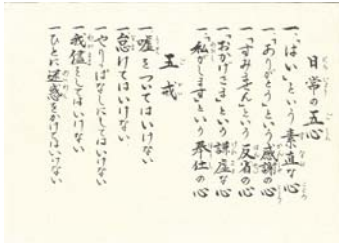 日常の五心
一、「はい」という素直な心
一、「ありがとう」という感謝の心
一、「すみません」という反省の心
一、「おかげさま」という謙虚な心
一、「私がします」という奉仕の心
五戒
一 嘘をついてはいけない
一 怠けてはいけない
一 やりっぱなしにしてはいけない
一 我儘をしてはいけない
一 ひとに迷惑をかけてはいけない